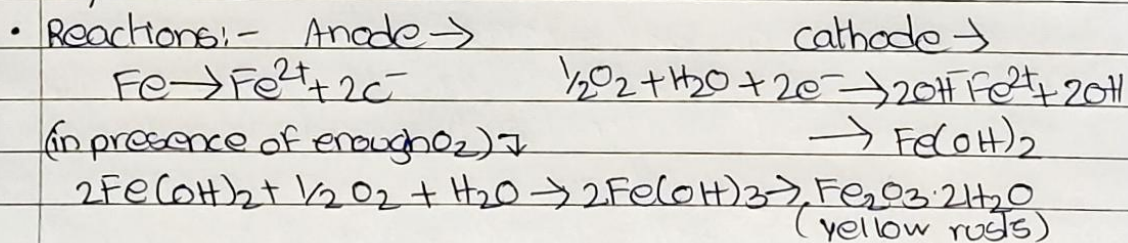 • Reactions:- Anode → cathode →
Fe → Fe²⁺ + 2e⁻ ½O₂ + H₂O + 2e⁻ → 2OH⁻ Fe²⁺ + 2OH
(in presence of enough O₂) ↴ → Fe(OH)₂
2Fe(OH)₂ + ½ O₂ + H₂O → 2Fe(OH)₃ → Fe₂O₃·2H₂O
(yellow rusts)